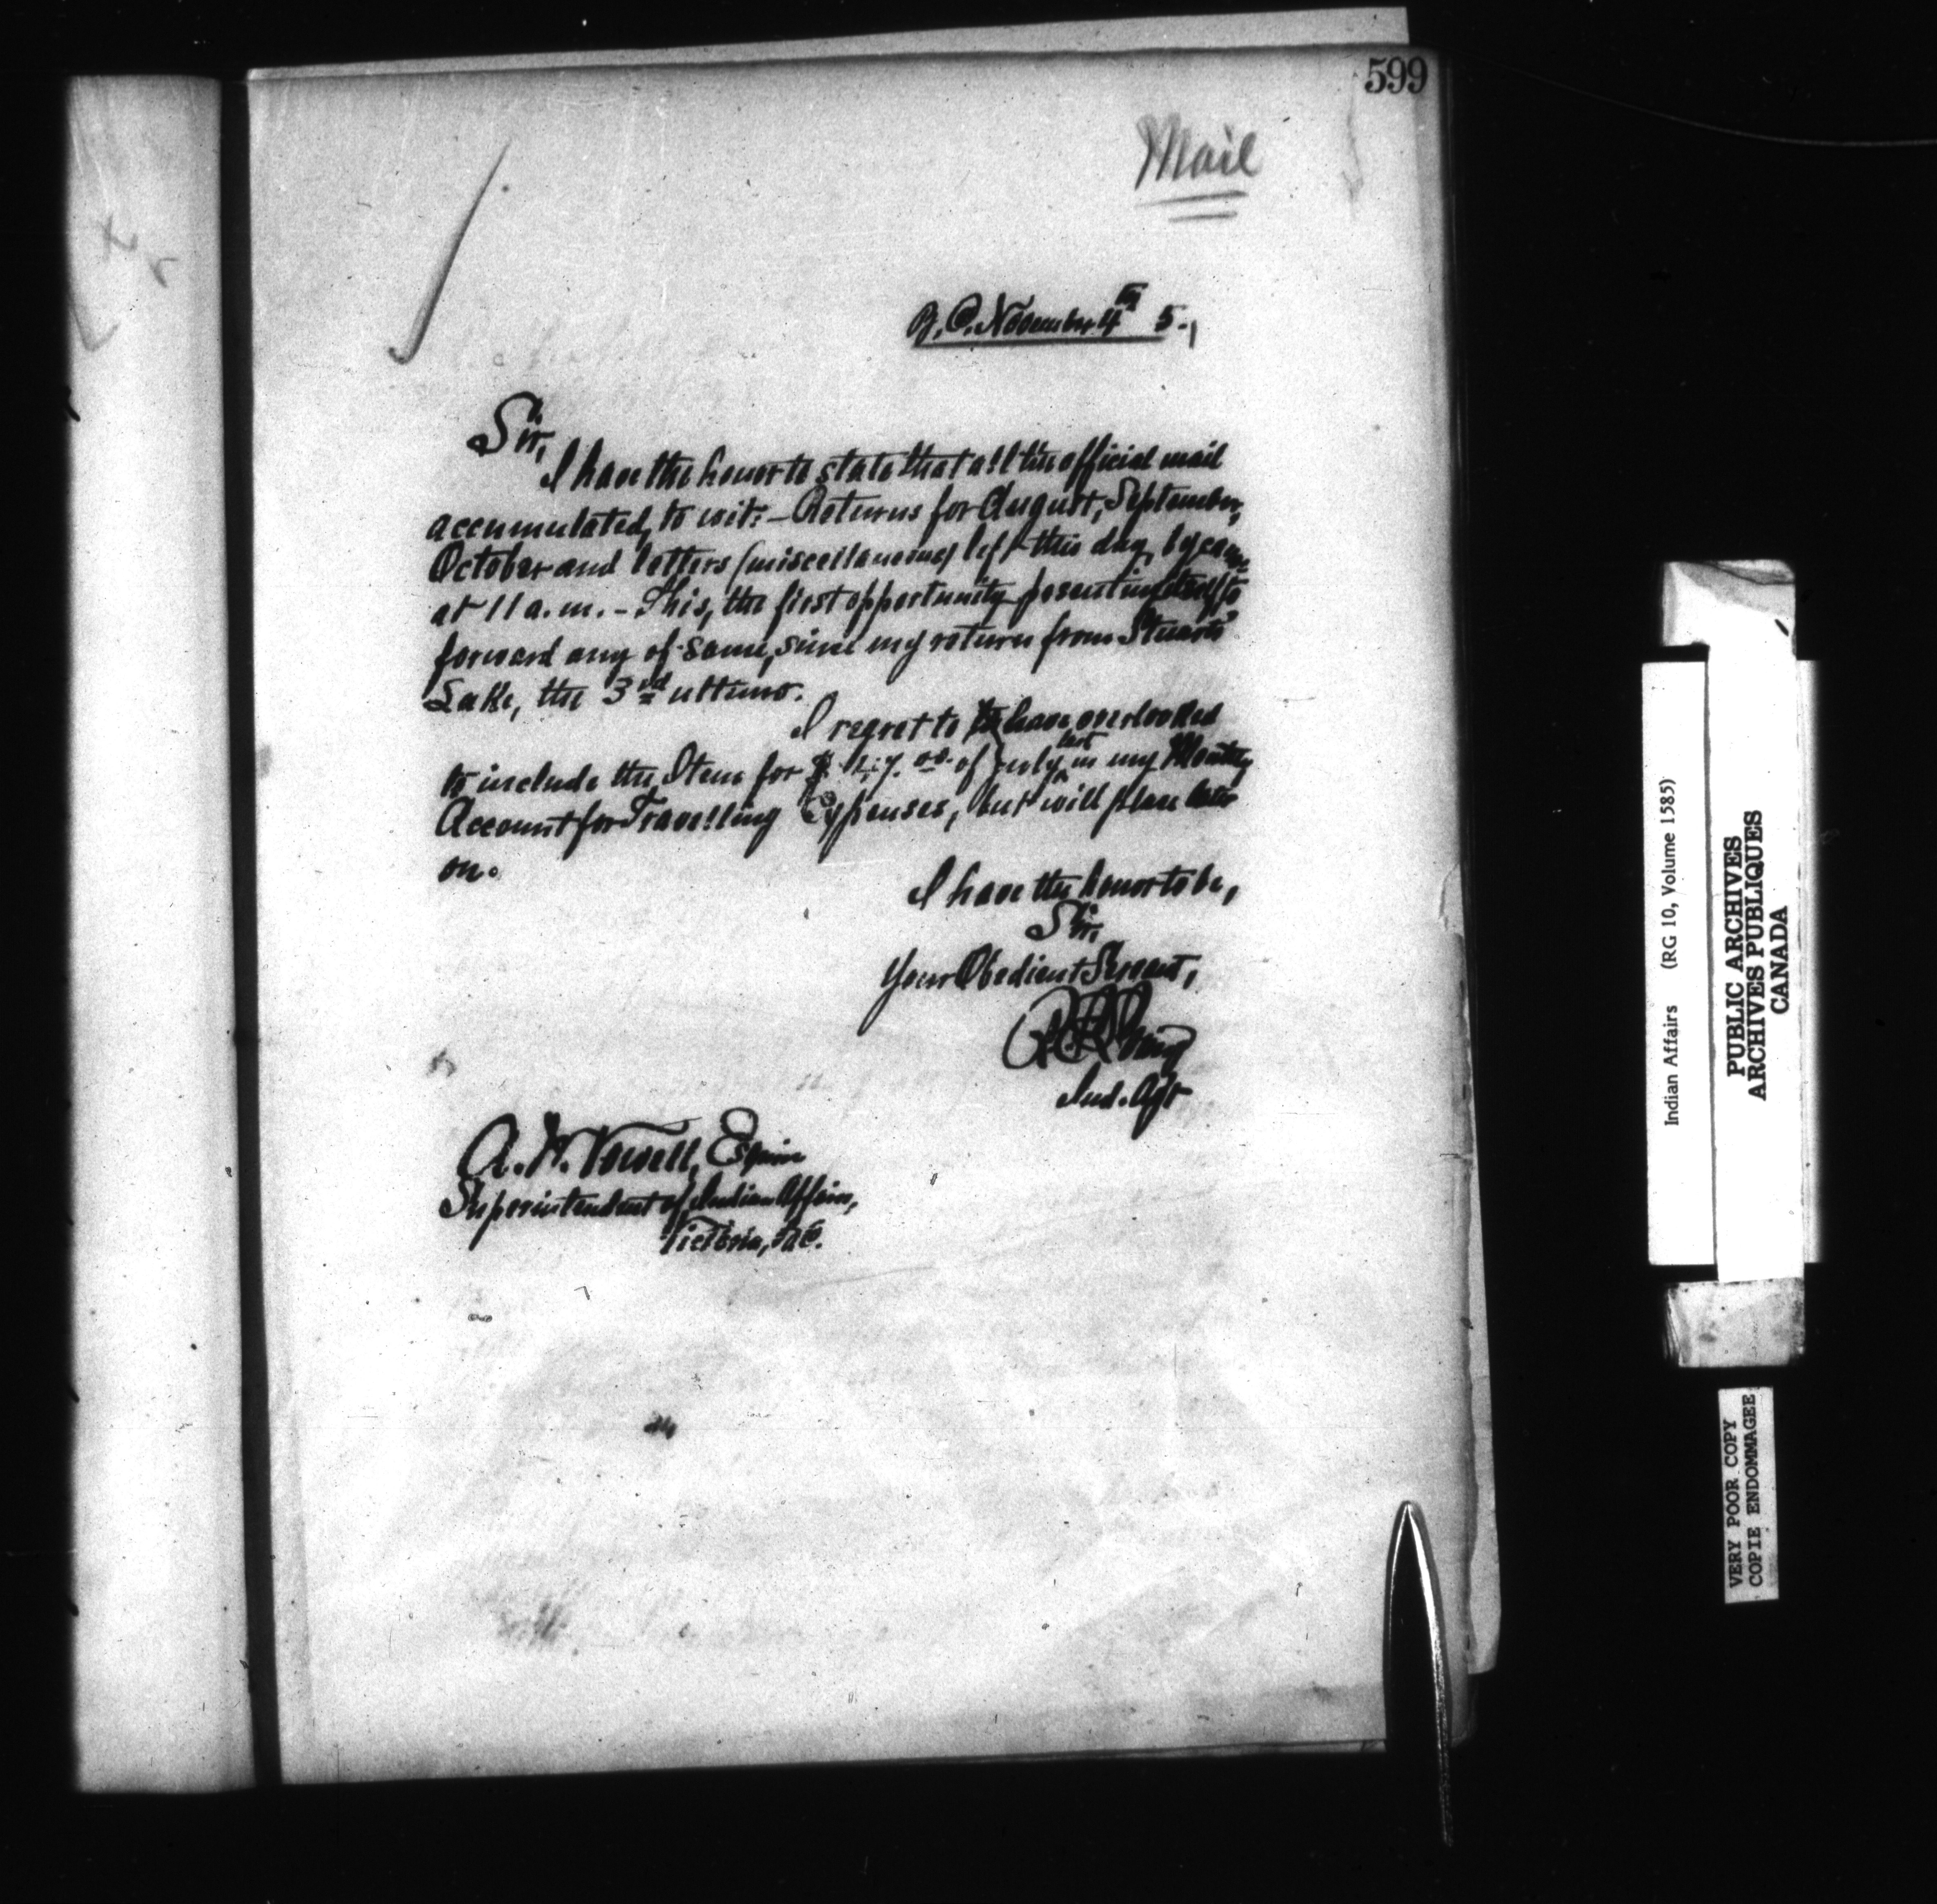 599
Mail
B.C. November 4th 5.,
Sir,
I have the honor to state that all the official mail
accumulated, to wit: - Returns for August, September,
October and letters (miscellaneous) left this day, by canoe
at 11 a.m. - This, the first opportunity presenting itself to
forward any of same, since my return from Stuarts
Lake, the 3rd ultimo.
I regret to have overlooked
to include the Item for $ of July last in my Monthly
Account for Travelling Expenses, but will place later
on.
I have the honor to be,
Sir,
Your Obedient Servant,
Ind. Agt
A. W. Vowell, Esquire
Superintendent of Indian Affairs,
Victoria, B.C.
Indian Affairs (RG 10, Volume 1585)
PUBLIC ARCHIVES
ARCHIVES PUBLIQUES
CANADA
VERY POOR COPY
COPIE ENDOMMAGEE